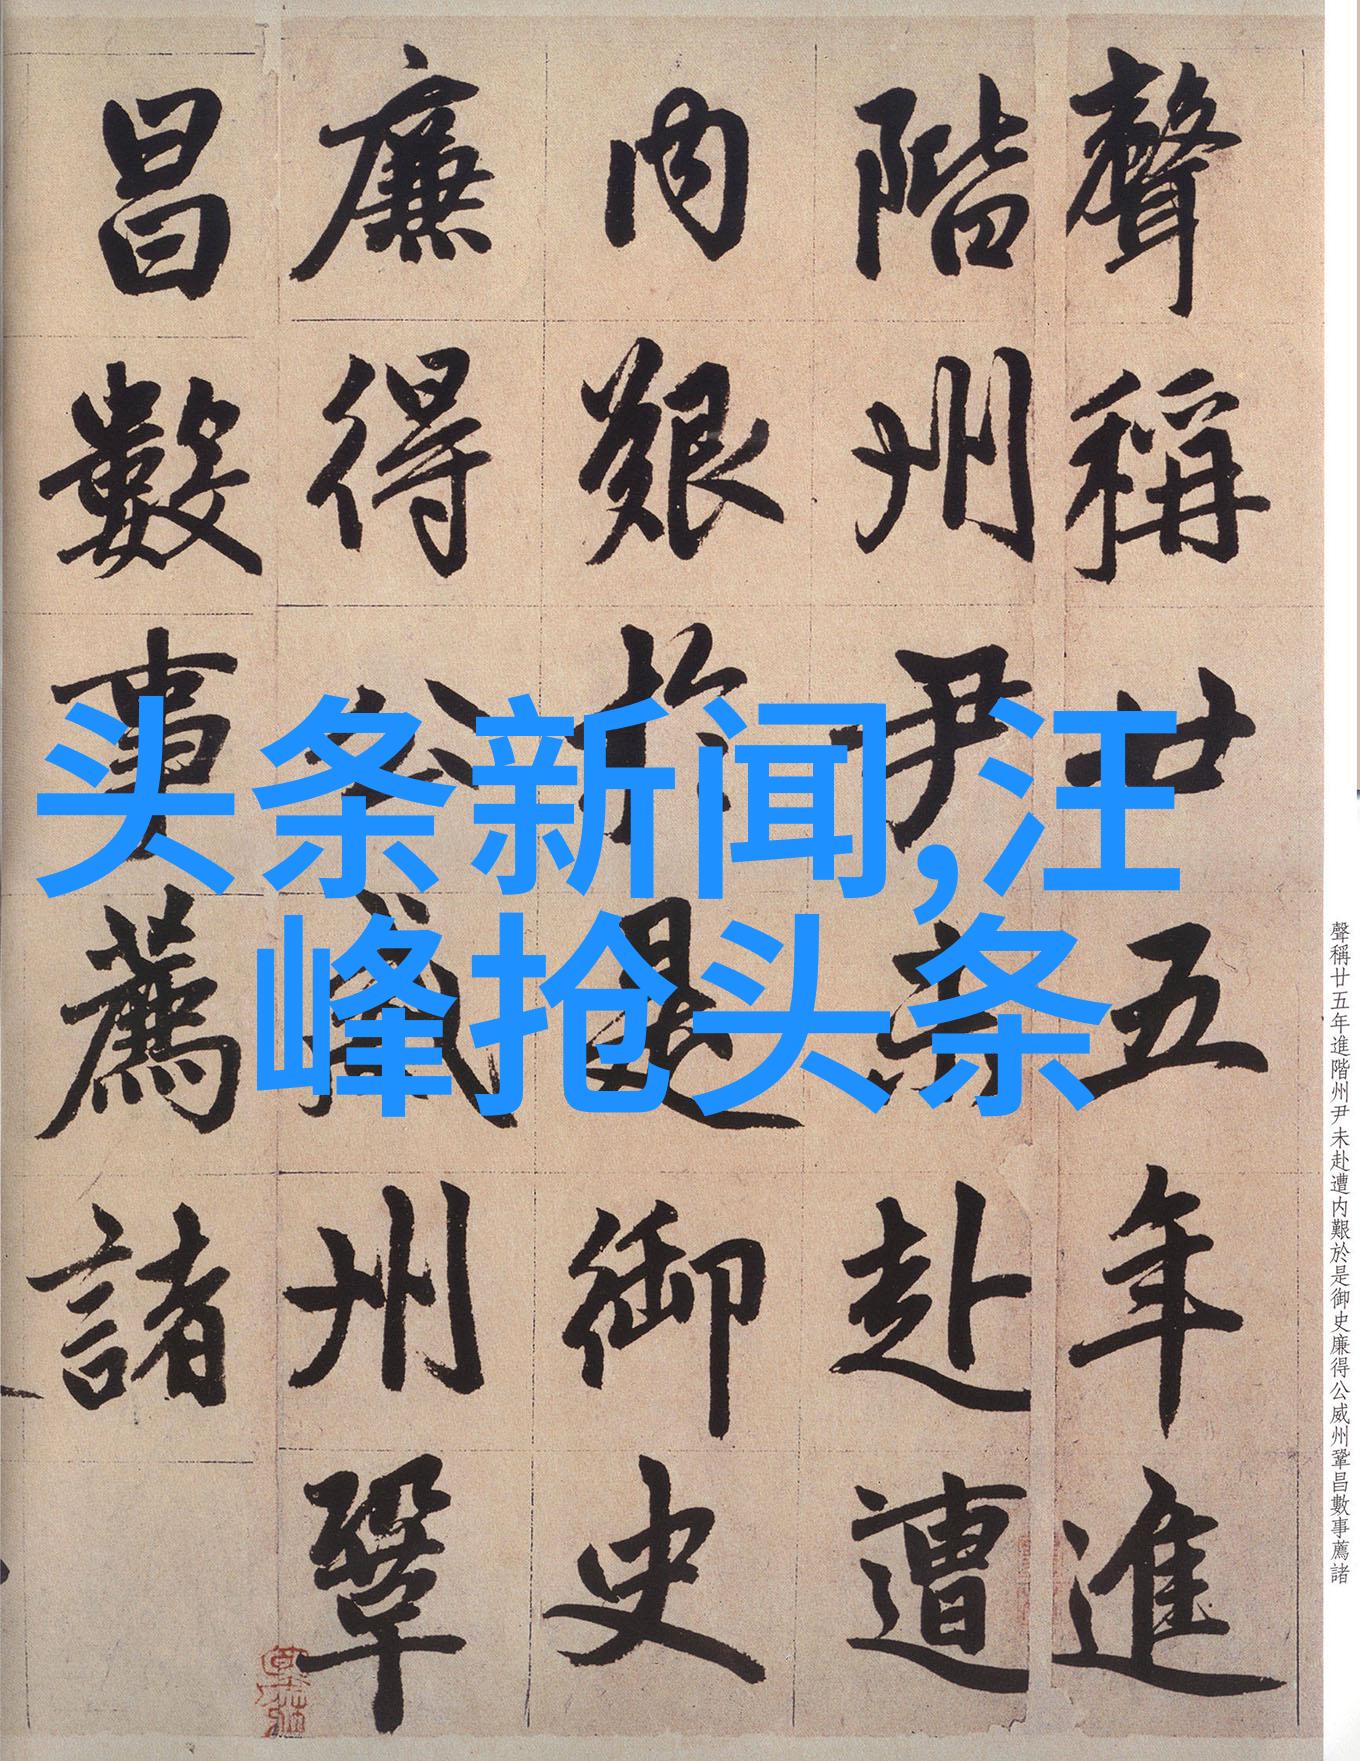 聲稱廿五年進
階州尹未赴遭
内艱於是御史
廉得公威州鞏
昌數事薦諸
头条新闻,汪
峰抢头条
聲稱廿五年進階州尹未赴遭内艱於是御史廉得公威州鞏昌數事薦諸